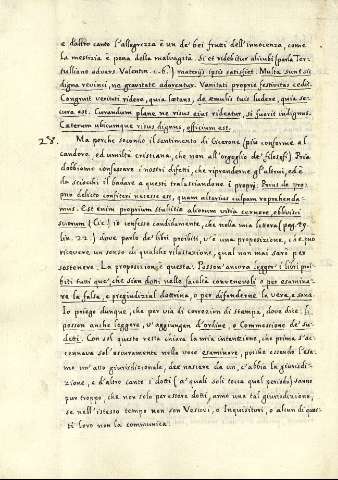 e dall'altro canto l'allegrezza è un de' bei frutti dell'innocenza, come
la mestizia è pena della malvagità. Si et ridebitur alicubi (parla Ter-
tulliano advers. Valentin. c. 6.) materijs ipsis satisfiet. Multa sunt sic
digna revinci, ne gravitate adorentur. Vanitati proprie festivitas cedit.
Congruit veritati ridere, quia laetans, de aemulis tuis ludere, quia se-
cura est. Curandum plane ne risus eius rideatur, si fuerit indignus.
Caeterum ubicumque risus dignus, officium est.
28. Ma perche secondo il sentimento di Cicerone (più conforme al
candore, ed umiltà cristiana, che non all'orgoglio de' filosofi) Pria
dobbiamo confessare i nostri difetti, che riprenderne gl'altrui, ed è
da sciocchi il badare a questi tralasciandone i propri. Prius de pro-
prio delicto confiteri necesse est, quam alterius culpam reprehenda-
mus. Est enim proprium stultitiae aliorum vitia cernere, oblivisci
suorum (Cic.) io confesso candidamente, che nella mia lettera (pag. 19.
lin. 22.) dove parlo de' libri proibiti, v'è una proposizione, che può
ricevere un senso di qualche rilassazione, qual non mai sarò per
sostenere. La proposizione è questa. Posson ancora leggere i libri proi-
biti tutti que', che sian dotti nelle facoltà convenevoli o per esamina-
re la falsa, e pregiudizial dottrina, o per difenderne la vera, e sana.
Io priego dunque, che per via di correzion di stampa, dove dice: li
posson anche leggere, v'aggiungan d'ordine, o Commessione de' su-
detti. Con sol questo resta chiara la mia intenzione, che prima s'ac-
cennava sol oscuramente nella voce esaminare, poiché essendo l'esa-
me un'atto giurisdizionale, dee nascere da un, c'abbia la giurisdi-
zione, e d'altro canto i dotti (a' quali soli tocca quel periodo) sanno
pur troppo, che non solo per essere dotti, anno una tal giurisdizione,
se nell'istesso tempo non son Vescovi, o Inquisitori, o alcun di que-
sti loro non la communica.